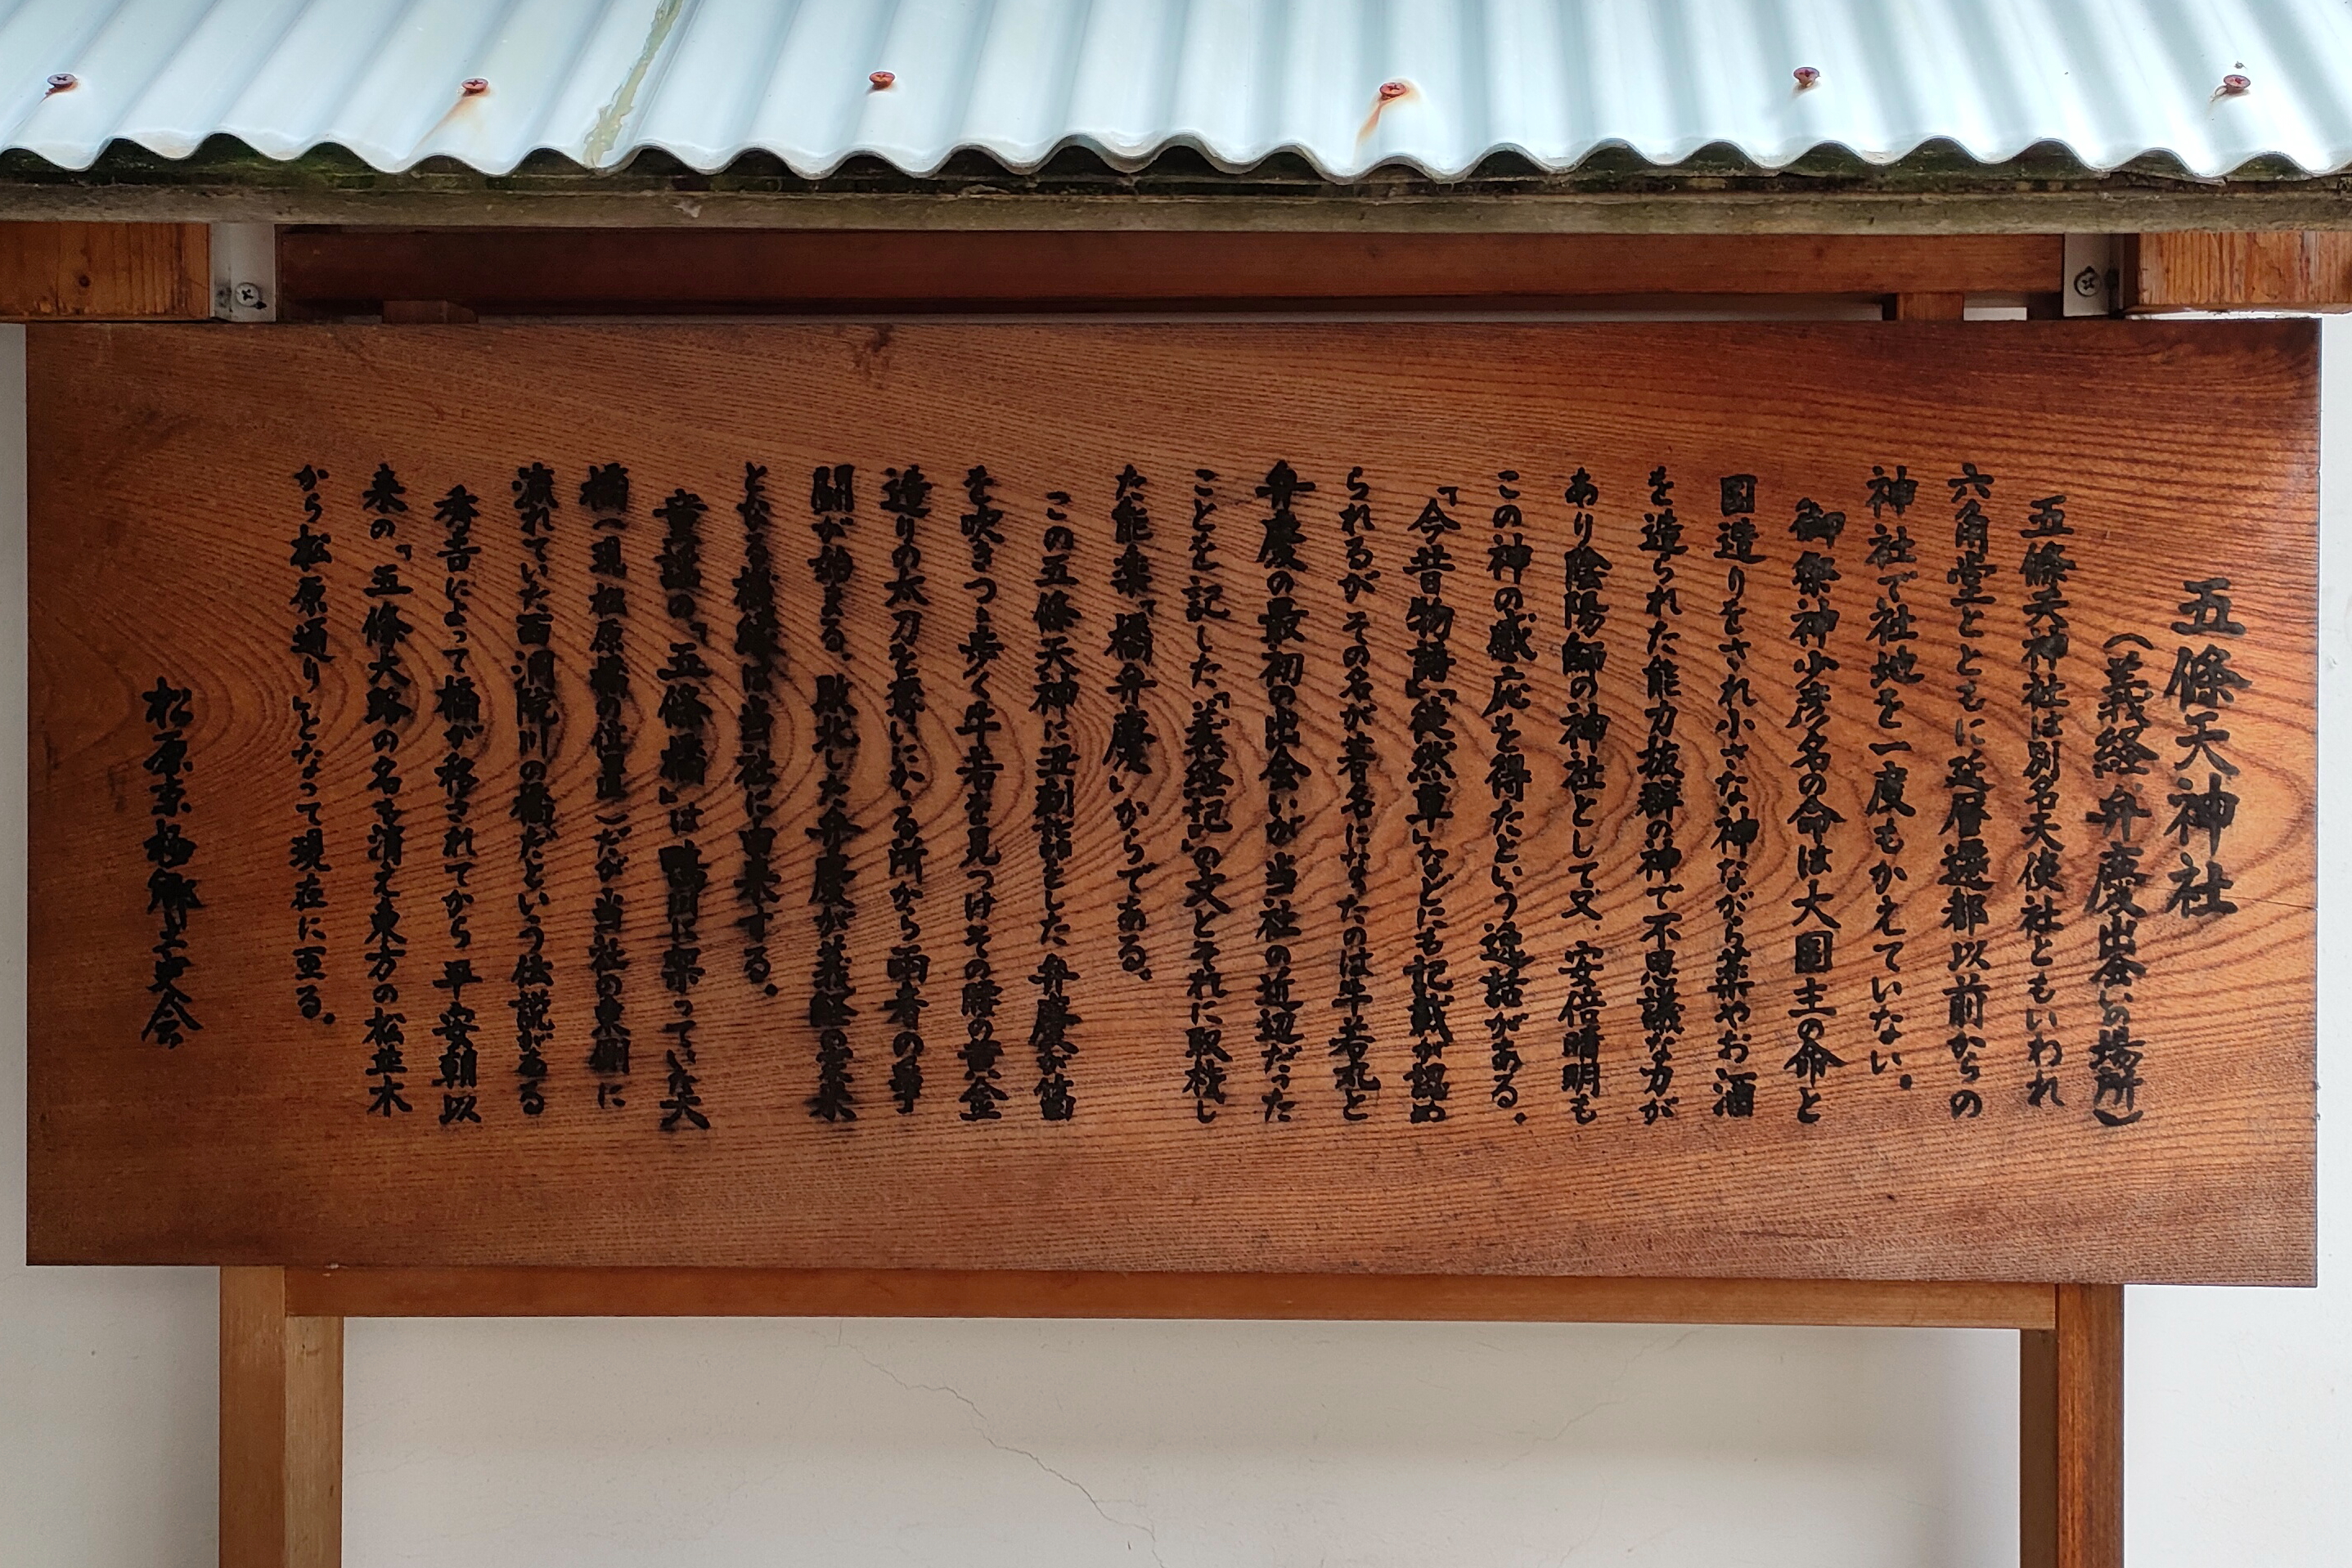 五條天神社
（義経 弁慶出会いの場所）
五條天神社は別名天使社ともいわれ
六角堂とともに延暦遷都以前からの
神社で社地を一度もかえていない。
御祭神少彦名の命は大国主の命と
国造りをされ小さな神ながら薬やお酒
を造られた能力抜群の神で不思議な方が
あり陰陽師の神社として又、安倍晴明も
この神の感応を得たという逸話がある。
「今昔物語」「徒然草」などにも記載が認め
られるが その名が著名になったのは牛若丸と
弁慶の最初の出会いが当社の近辺だった
ことを記した「義経記」の文とそれに取材し
た能楽「橋弁慶」からである。
この五條天神に丑刻詣をした 弁慶が笛
を吹きつゝ歩く牛若を見つけその腰の黄金
造りの太刀を奪いにかゝる所から両者の争
闘が始まる、敗北した弁慶が義経の家来
となる機縁は当社に由来する。
童謡の「五條橋」は鴨川に架っていた大
橋（現松原橋の位置）だが当社の東側に
流れていた西洞院川の橋だという伝説がある
秀吉によって橋が移されてから 平安朝以
来の「五條大路」の名も消え東方の松並木
から松原通り」となって現在に至る。
松原京極郷土史会